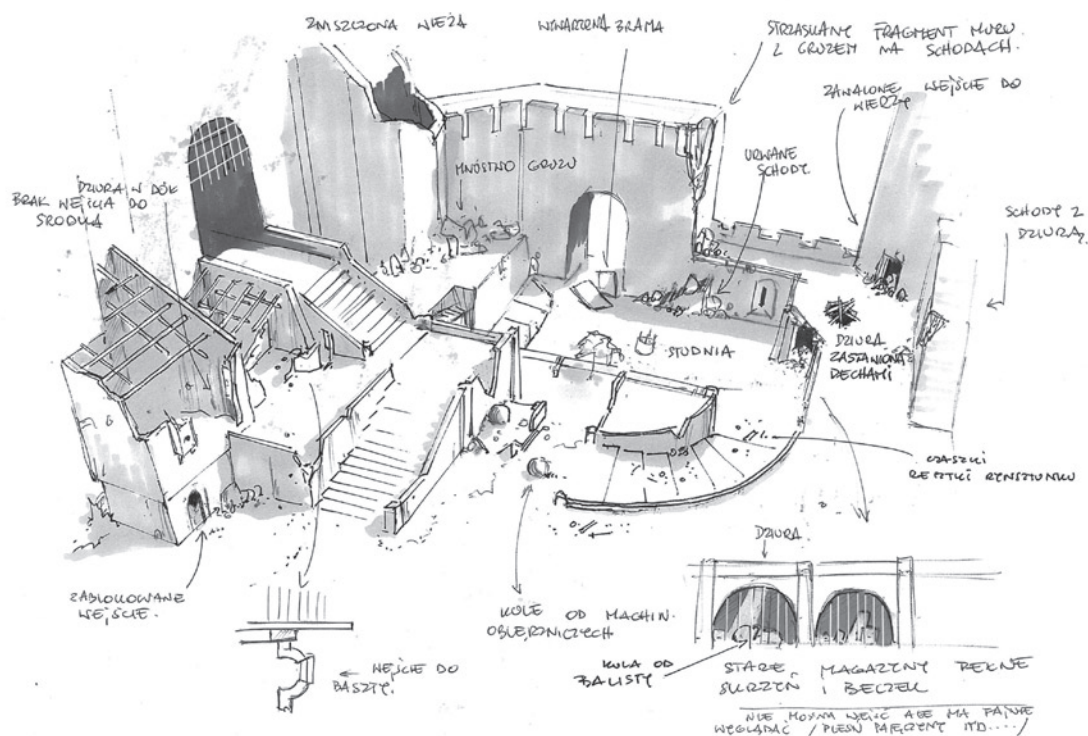 ZNISZCZONA WIEŻA
WYWARZONA BRAMA
STRZASKANY FRAGMENT MURU
Z GRUZEM NA SCHODACH.
ZAWALONE WEJŚCIE DO
WIERZY
MNÓSTWO GRUZU
URWANE
SCHODY
DZIURA W DÓŁ
BRAK WEJŚCIA DO
ŚRODKA
SCHODY Z
DZIURĄ
STUDNIA
DZIURA
ZASŁANIONA
DECHAMI
CZASZKI
RESZTKI RYNSZTUNKU
ZABLOKOWANE
WEJŚCIE.
WEJŚCIE DO
BASZTY.
KULE OD MACHIN
OBLĘŻNICZYCH
DZIURA
KULA OD
BALISTY
STARE MAGAZYNY PEŁNE
SKRZYŃ I BECZEK
NIE MOŻNA WEJŚĆ ALE MA FAJNIE
WYGLĄDAĆ / PLEŚŃ PAJĘCZYNY ITD..../